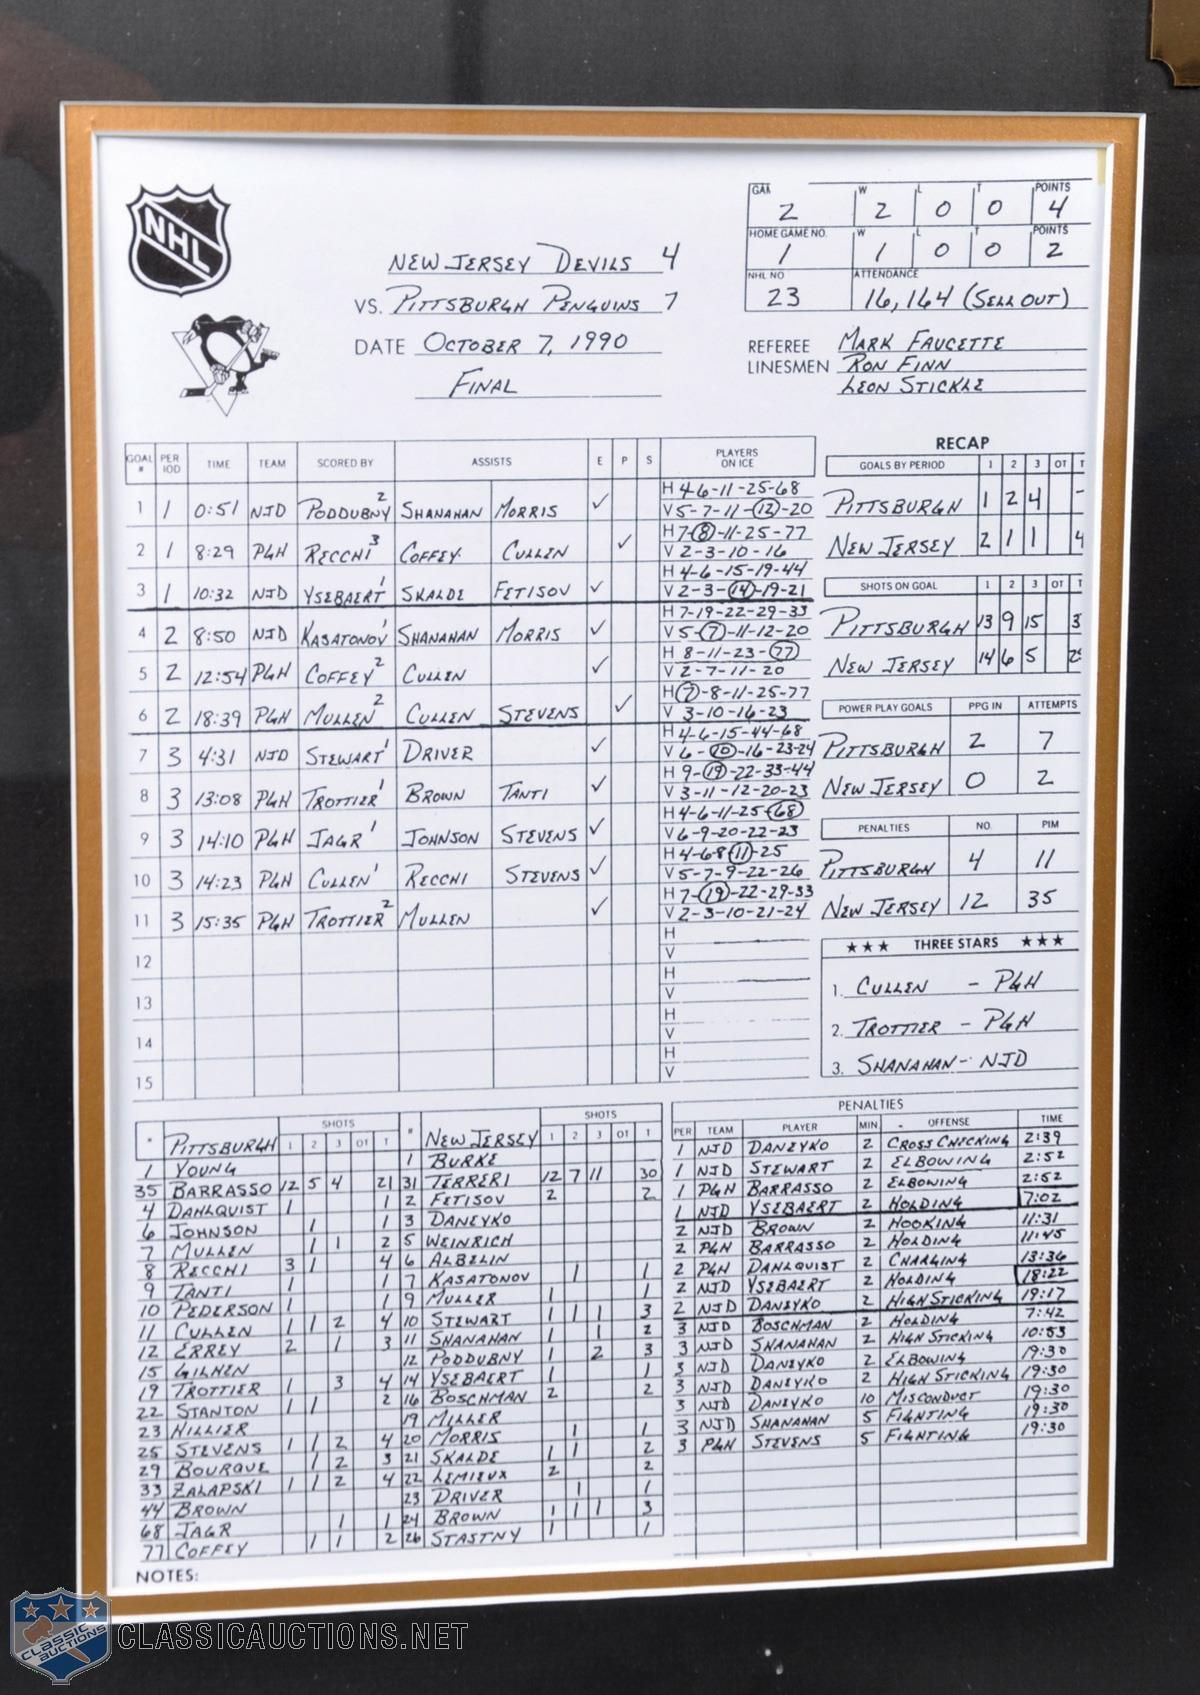 NHL
GAK W L T POINTS
2 2 0 0 4
HOME GAME NO. W L T POINTS
1 1 0 0 2
NHL NO ATTENDANCE
23 16,164 (SELL OUT)
NEW JERSEY DEVILS 4
VS. PITTSBURGH PENGUINS 7
DATE OCTOBER 7, 1990
FINAL
REFEREE MARK FAUCETTE
LINESMEN RON FINN
LEON STICKLE
GOAL # PERIOD TIME TEAM SCORED BY ASSISTS E P S PLAYERS ON ICE
1 1 0:51 NJD PODDUBNY 2 SHANAHAN MORRIS ✓ H 4-6-11-25-68
V 5-7-11-12-20
2 1 8:29 PGH RECCHI 3 COFFEY CULLEN ✓ H 7-8-11-25-77
V 2-3-10-16
3 1 10:32 NJD YSEBAERT 1 SKALDE FETISOV ✓ H 4-6-15-19-44
V 2-3-14-19-21
4 2 8:50 NJD KASATONOV 1 SHANAHAN MORRIS ✓ H 7-19-22-29-33
V 5-7-11-12-20
5 2 12:54 PGH COFFEY 2 CULLEN ✓ H 8-11-23-77
V 2-7-11-20
6 2 18:39 PGH MULLEN 2 CULLEN STEVENS ✓ H 7-8-11-25-77
V 3-10-16-23
7 3 4:31 NJD STEWART 1 DRIVER ✓ H 4-6-15-44-68
V 6-10-16-23-24
8 3 13:08 PGH TROTTIER 1 BROWN TANTI ✓ H 9-19-22-33-44
V 3-11-12-20-23
9 3 14:10 PGH JAGR 1 JOHNSON STEVENS ✓ H 4-6-11-25-68
V 6-9-20-22-23
10 3 14:23 PGH CULLEN 1 RECCHI STEVENS ✓ H 4-68-11-25
V 5-7-9-22-26
11 3 15:35 PGH TROTTIER 2 MULLEN ✓ H 7-19-22-29-33
V 2-3-10-21-24
12 H
V
13 H
V
14 H
V
15 H
V
RECAP
GOALS BY PERIOD 1 2 3 OT T
PITTSBURGH 1 2 4
NEW JERSEY 2 1 1 4
SHOTS ON GOAL 1 2 3 OT T
PITTSBURGH 13 9 15 3
NEW JERSEY 14 6 5 2
POWER PLAY GOALS PPG IN ATTEMPTS
PITTSBURGH 2 7
NEW JERSEY 0 2
PENALTIES NO. PIM
PITTSBURGH 4 11
NEW JERSEY 12 35
★★★ THREE STARS ★★★
1. CULLEN - PGH
2. TROTTIER - PGH
3. SHANAHAN - NJD
SHOTS
# PITTSBURGH 1 2 3 OT T
1 YOUNG
35 BARRASSO 12 5 4 21
4 DAHLQUIST 1 1
6 JOHNSON 1 1
7 MULLEN 1 1 2
8 RECCHI 3 1 4
9 TANTI 1 1
10 PEDERSON 1 1
11 CULLEN 1 1 2 4
12 ERREY 2 1 3
15 GILHEN
19 TROTTIER 1 3 4
22 STANTON 1 1 2
23 HILLIER
25 STEVENS 1 1 2 4
29 BOURQUE 1 2 3
33 ZALAPSKI 1 1 2 4
44 BROWN
68 JAGR 1 1
77 COFFEY 1 1 2
SHOTS
# NEW JERSEY 1 2 3 OT T
1 BURKE
31 TERRERI 12 7 11 30
2 FETISOV 2 2
3 DANEYKO
5 WEINRICH
6 ALBELIN
7 KASATONOV 1 1
9 MULLER 1 1
10 STEWART 1 1 1 3
11 SHANAHAN 1 1 2
12 PODDUBNY 1 2 3
14 YSEBAERT 1 1
16 BOSCHMAN 2 2
19 MILLER
20 MORRIS 1 1
21 SKALDE 1 1 2
22 LEMIEUX 2 2
23 DRIVER 1 1
24 BROWN 1 1 1 3
26 STASTNY 1 1
PENALTIES
PER TEAM PLAYER MIN OFFENSE TIME
1 NJD DANEYKO 2 CROSS CHECKING 2:39
1 NJD STEWART 2 ELBOWING 2:52
1 PGH BARRASSO 2 ELBOWING 2:52
1 NJD YSEBAERT 2 HOLDING 7:02
2 NJD BROWN 2 HOOKING 11:31
2 PGH BARRASSO 2 HOLDING 11:45
2 PGH DAHLQUIST 2 CHARGING 13:36
2 NJD YSEBAERT 2 HOLDING 18:22
2 NJD DANEYKO 2 HIGH STICKING 19:17
3 NJD BOSCHMAN 2 HOLDING 7:42
3 NJD SHANAHAN 2 HIGH STICKING 10:53
3 NJD DANEYKO 2 ELBOWING 19:30
3 NJD DANEYKO 2 HIGH STICKING 19:30
3 NJD DANEYKO 10 MISCONDUCT 19:30
3 NJD SHANAHAN 5 FIGHTING 19:30
3 PGH STEVENS 5 FIGHTING 19:30
NOTES:
CLASSIC AUCTIONS
CLASSICAUCTIONS.NET